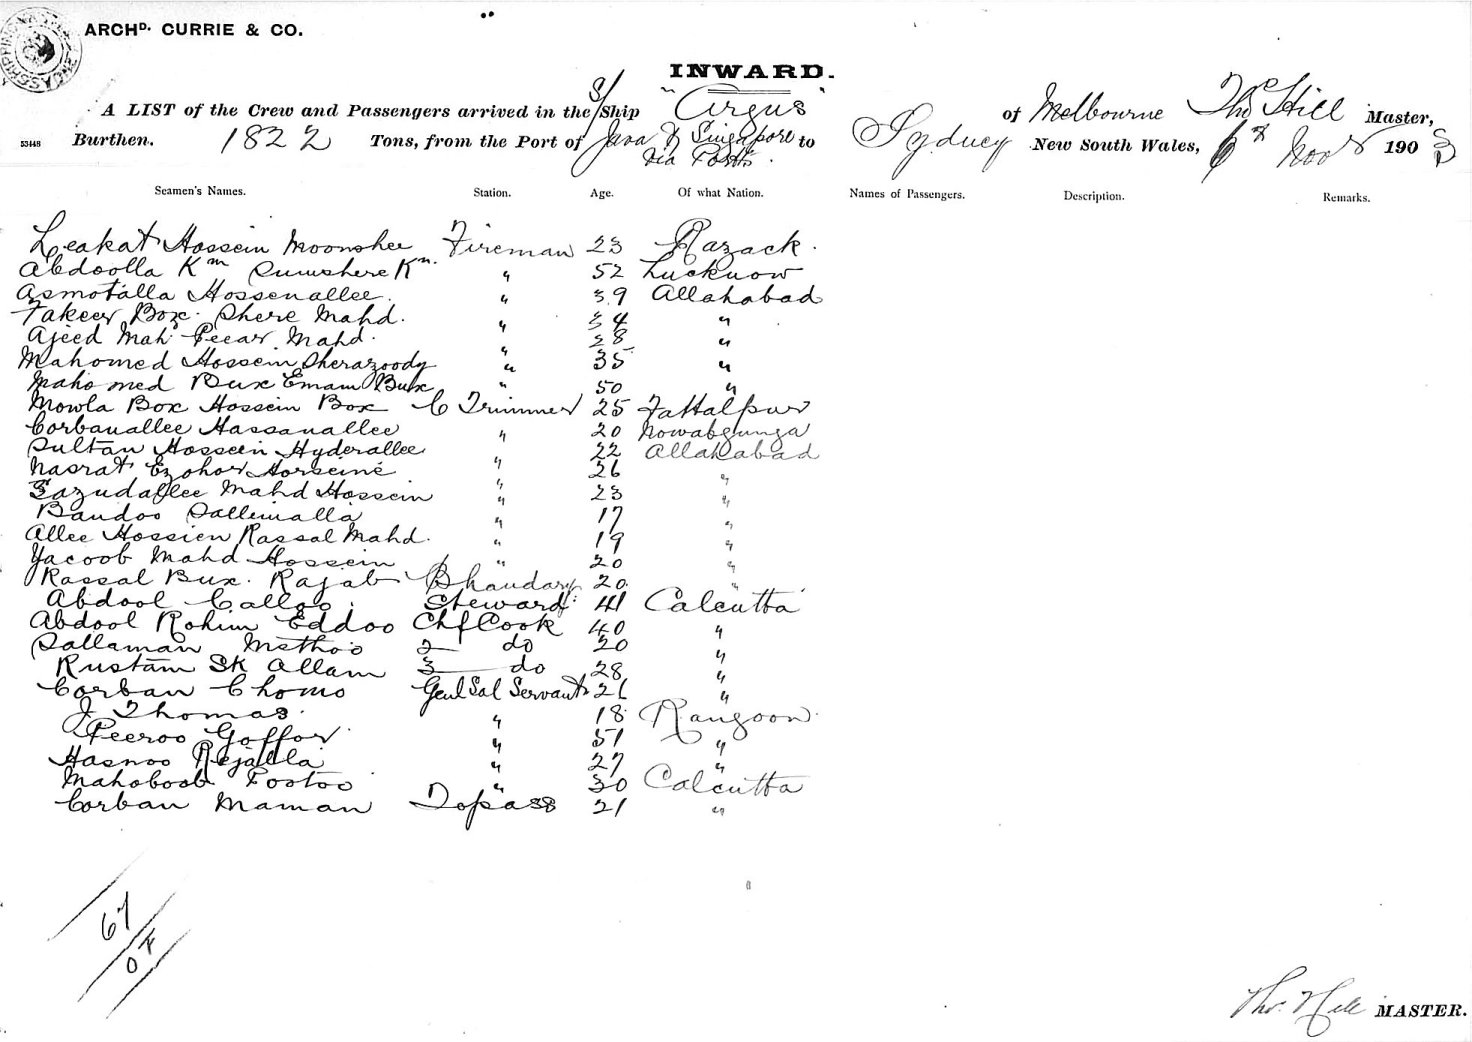 ARCHD. CURRIE & CO.
INWARD.
A LIST of the Crew and Passengers arrived in the S/Ship "Argus" of Melbourne Thos Hill Master,
53448 Burthen. 1822 Tons, from the Port of Java & Singapore via Ports to Sydney New South Wales, 6th Novr 1903
Seamen's Names. Station. Age. Of what Nation. Names of Passengers. Description. Remarks.
Leakat Hossein Moonshee Fireman 23 Razack.
Abdoolla Kn Sumshere Kn. " 52 Lucknow
Asmotalla Hossenallee. " 39 Allahabad
Fakeer Box. Shere Mahd. " 34 "
Ajeed Mah Peear Mahd. " 28 "
Mahomed Hossein Sherazoody " 35 "
Mahomed Bux Emam Bux " 50 "
Mowla Box Hossein Box C Trimmer 25 Fattalpur
Corbanallee Hassanallee " 20 Nowabgunga
Sultan Hossein Hyderallee " 22 Allahabad
Nasrat Ezohor Horseine " 26 "
Sazudallee Mahd Hossein " 23 "
Bandoo Sallimalla " 17 "
Allee Hossien Rassal Mahd. " 19 "
Yacoob Mahd Hossein " 20 "
Rassal Bux. Rajab Bhandary 20 "
Abdool Calloo. Steward 41 Calcutta
Abdool Rohim Eddoo Chf Cook 40 "
Sallaman Methoo 2 do 20 "
Rustam SK Allam 3 do 28 "
Corban Chomo Genl Sal Servant 21 "
J Thomas. " 18 Rangoon
Peeroo Goffor " 51 "
Hasnoo Rejalla " 27 "
Mahoboob Footoo " 30 Calcutta
Corban Maman Topass 21 "
67
OK
Thos. Hill MASTER.